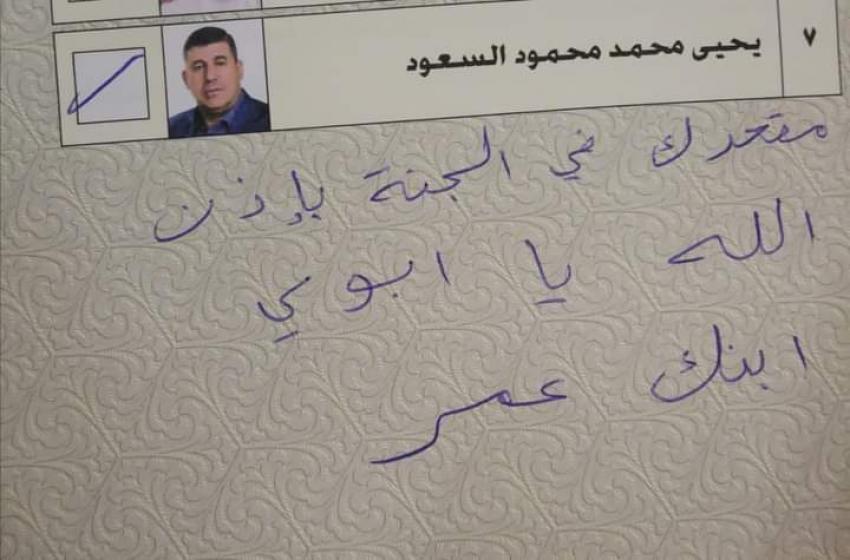 ٧ يحيى محمد محمود السعود
مقعدك في الجنة بإذن
الله يا ابوي
ابنك عمر